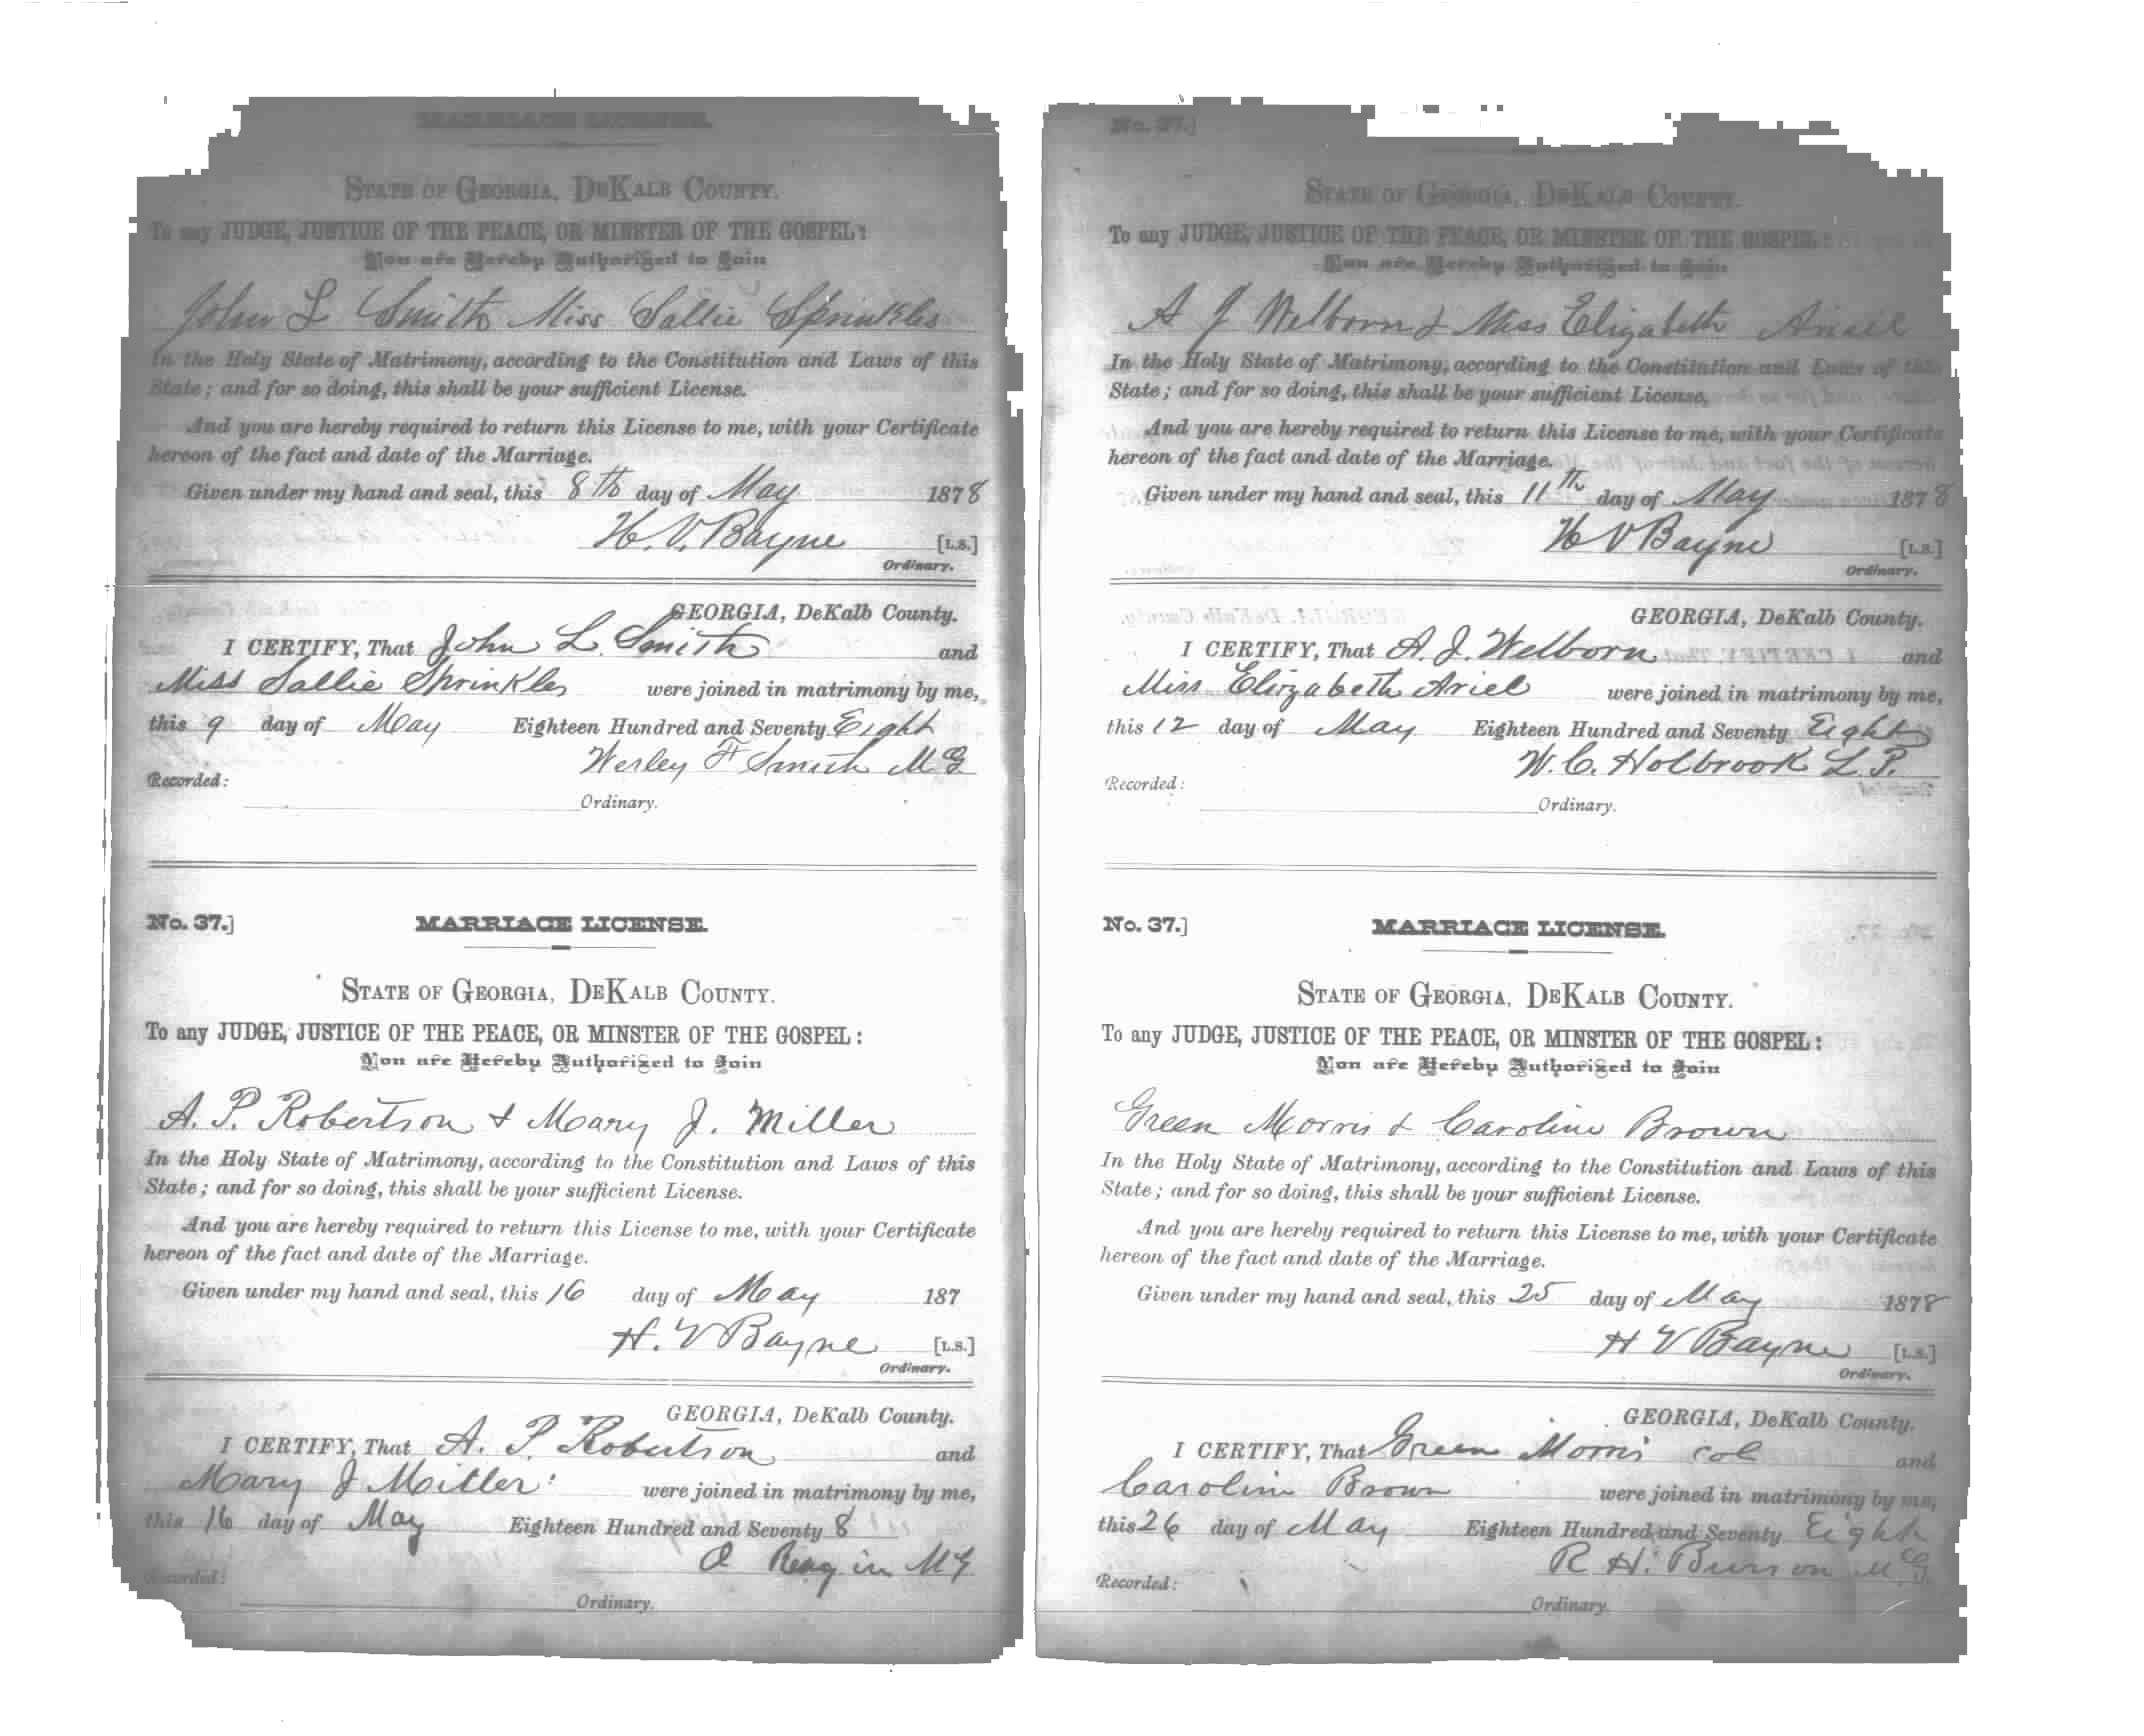 MARRIAGE LICENSE.
STATE OF GEORGIA, DEKALB COUNTY.
To any JUDGE, JUSTICE OF THE PEACE, OR MINSTER OF THE GOSPEL:
You are Hereby Authorized to Join
John L Smith Miss Sallie Sprinkles
In the Holy State of Matrimony, according to the Constitution and Laws of this
State; and for so doing, this shall be your sufficient License.
And you are hereby required to return this License to me, with your Certificate
hereon of the fact and date of the Marriage.
Given under my hand and seal, this 8th day of May 1878
H. V. Bayne [L.S.]
Ordinary.
GEORGIA, DeKalb County.
I CERTIFY, That John L. Smith and
Miss Sallie Sprinkles were joined in matrimony by me,
this 9 day of May Eighteen Hundred and Seventy Eight
Wesley F Smith M G
Recorded:
Ordinary.
No. 37.] MARRIAGE LICENSE.
STATE OF GEORGIA, DEKALB COUNTY.
To any JUDGE, JUSTICE OF THE PEACE, OR MINSTER OF THE GOSPEL:
You are Hereby Authorized to Join
A. P. Robertson & Mary J. Miller
In the Holy State of Matrimony, according to the Constitution and Laws of this
State; and for so doing, this shall be your sufficient License.
And you are hereby required to return this License to me, with your Certificate
hereon of the fact and date of the Marriage.
Given under my hand and seal, this 16 day of May 187
H. V Bayne [L.S.]
Ordinary.
GEORGIA, DeKalb County.
I CERTIFY, That A. P. Robertson and
Mary J Miller were joined in matrimony by me,
this 16 day of May Eighteen Hundred and Seventy 8
M G
Recorded:
Ordinary.
No. 37.]
STATE OF GEORGIA, DEKALB COUNTY.
To any JUDGE, JUSTICE OF THE PEACE, OR MINSTER OF THE GOSPEL:
You are Hereby Authorized to Join
A J Welborn & Miss Elizabeth Ariel
In the Holy State of Matrimony, according to the Constitution and Laws of this
State; and for so doing, this shall be your sufficient License,
And you are hereby required to return this License to me, with your Certificate
hereon of the fact and date of the Marriage.
Given under my hand and seal, this 11th day of May 1878
H V Bayne [L.S.]
Ordinary.
GEORGIA, DeKalb County.
I CERTIFY, That A. J. Welborn and
Miss Elizabeth Ariel were joined in matrimony by me,
this 12 day of May Eighteen Hundred and Seventy Eight
W. C. Holbrook L. P.
Recorded:
Ordinary.
No. 37.] MARRIAGE LICENSE.
STATE OF GEORGIA, DEKALB COUNTY.
To any JUDGE, JUSTICE OF THE PEACE, OR MINSTER OF THE GOSPEL:
You are Hereby Authorized to Join
Green Morris & Caroline Brown
In the Holy State of Matrimony, according to the Constitution and Laws of this
State; and for so doing, this shall be your sufficient License.
And you are hereby required to return this License to me, with your Certificate
hereon of the fact and date of the Marriage.
Given under my hand and seal, this 25 day of May 1878
H V Bayne [L.S.]
Ordinary.
GEORGIA, DeKalb County.
I CERTIFY, That Green Morris col and
Caroline Brown were joined in matrimony by me,
this 26 day of May Eighteen Hundred and Seventy Eight
R H. Burson M G
Recorded:
Ordinary.